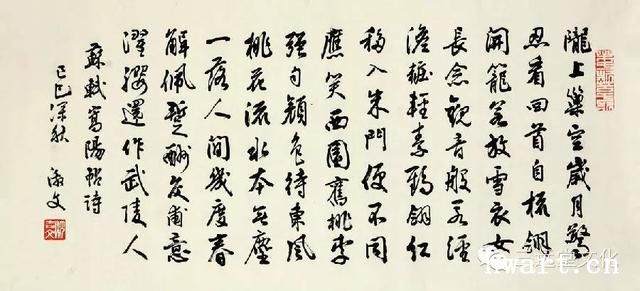 隴上巢空歲月驚
忍看回首自梳翎
開籠若放雪衣女
長念觀音般若經
澹粧輕素鶴翎紅
移入朱門便不同
應笑西園舊桃李
强勻顏色待東風
桃花流水本無塵
一落人間幾度春
解佩暫酬交甫意
濯纓還作武陵人
蘇軾寫陽帖詩
己巳深秋
hwart.cn